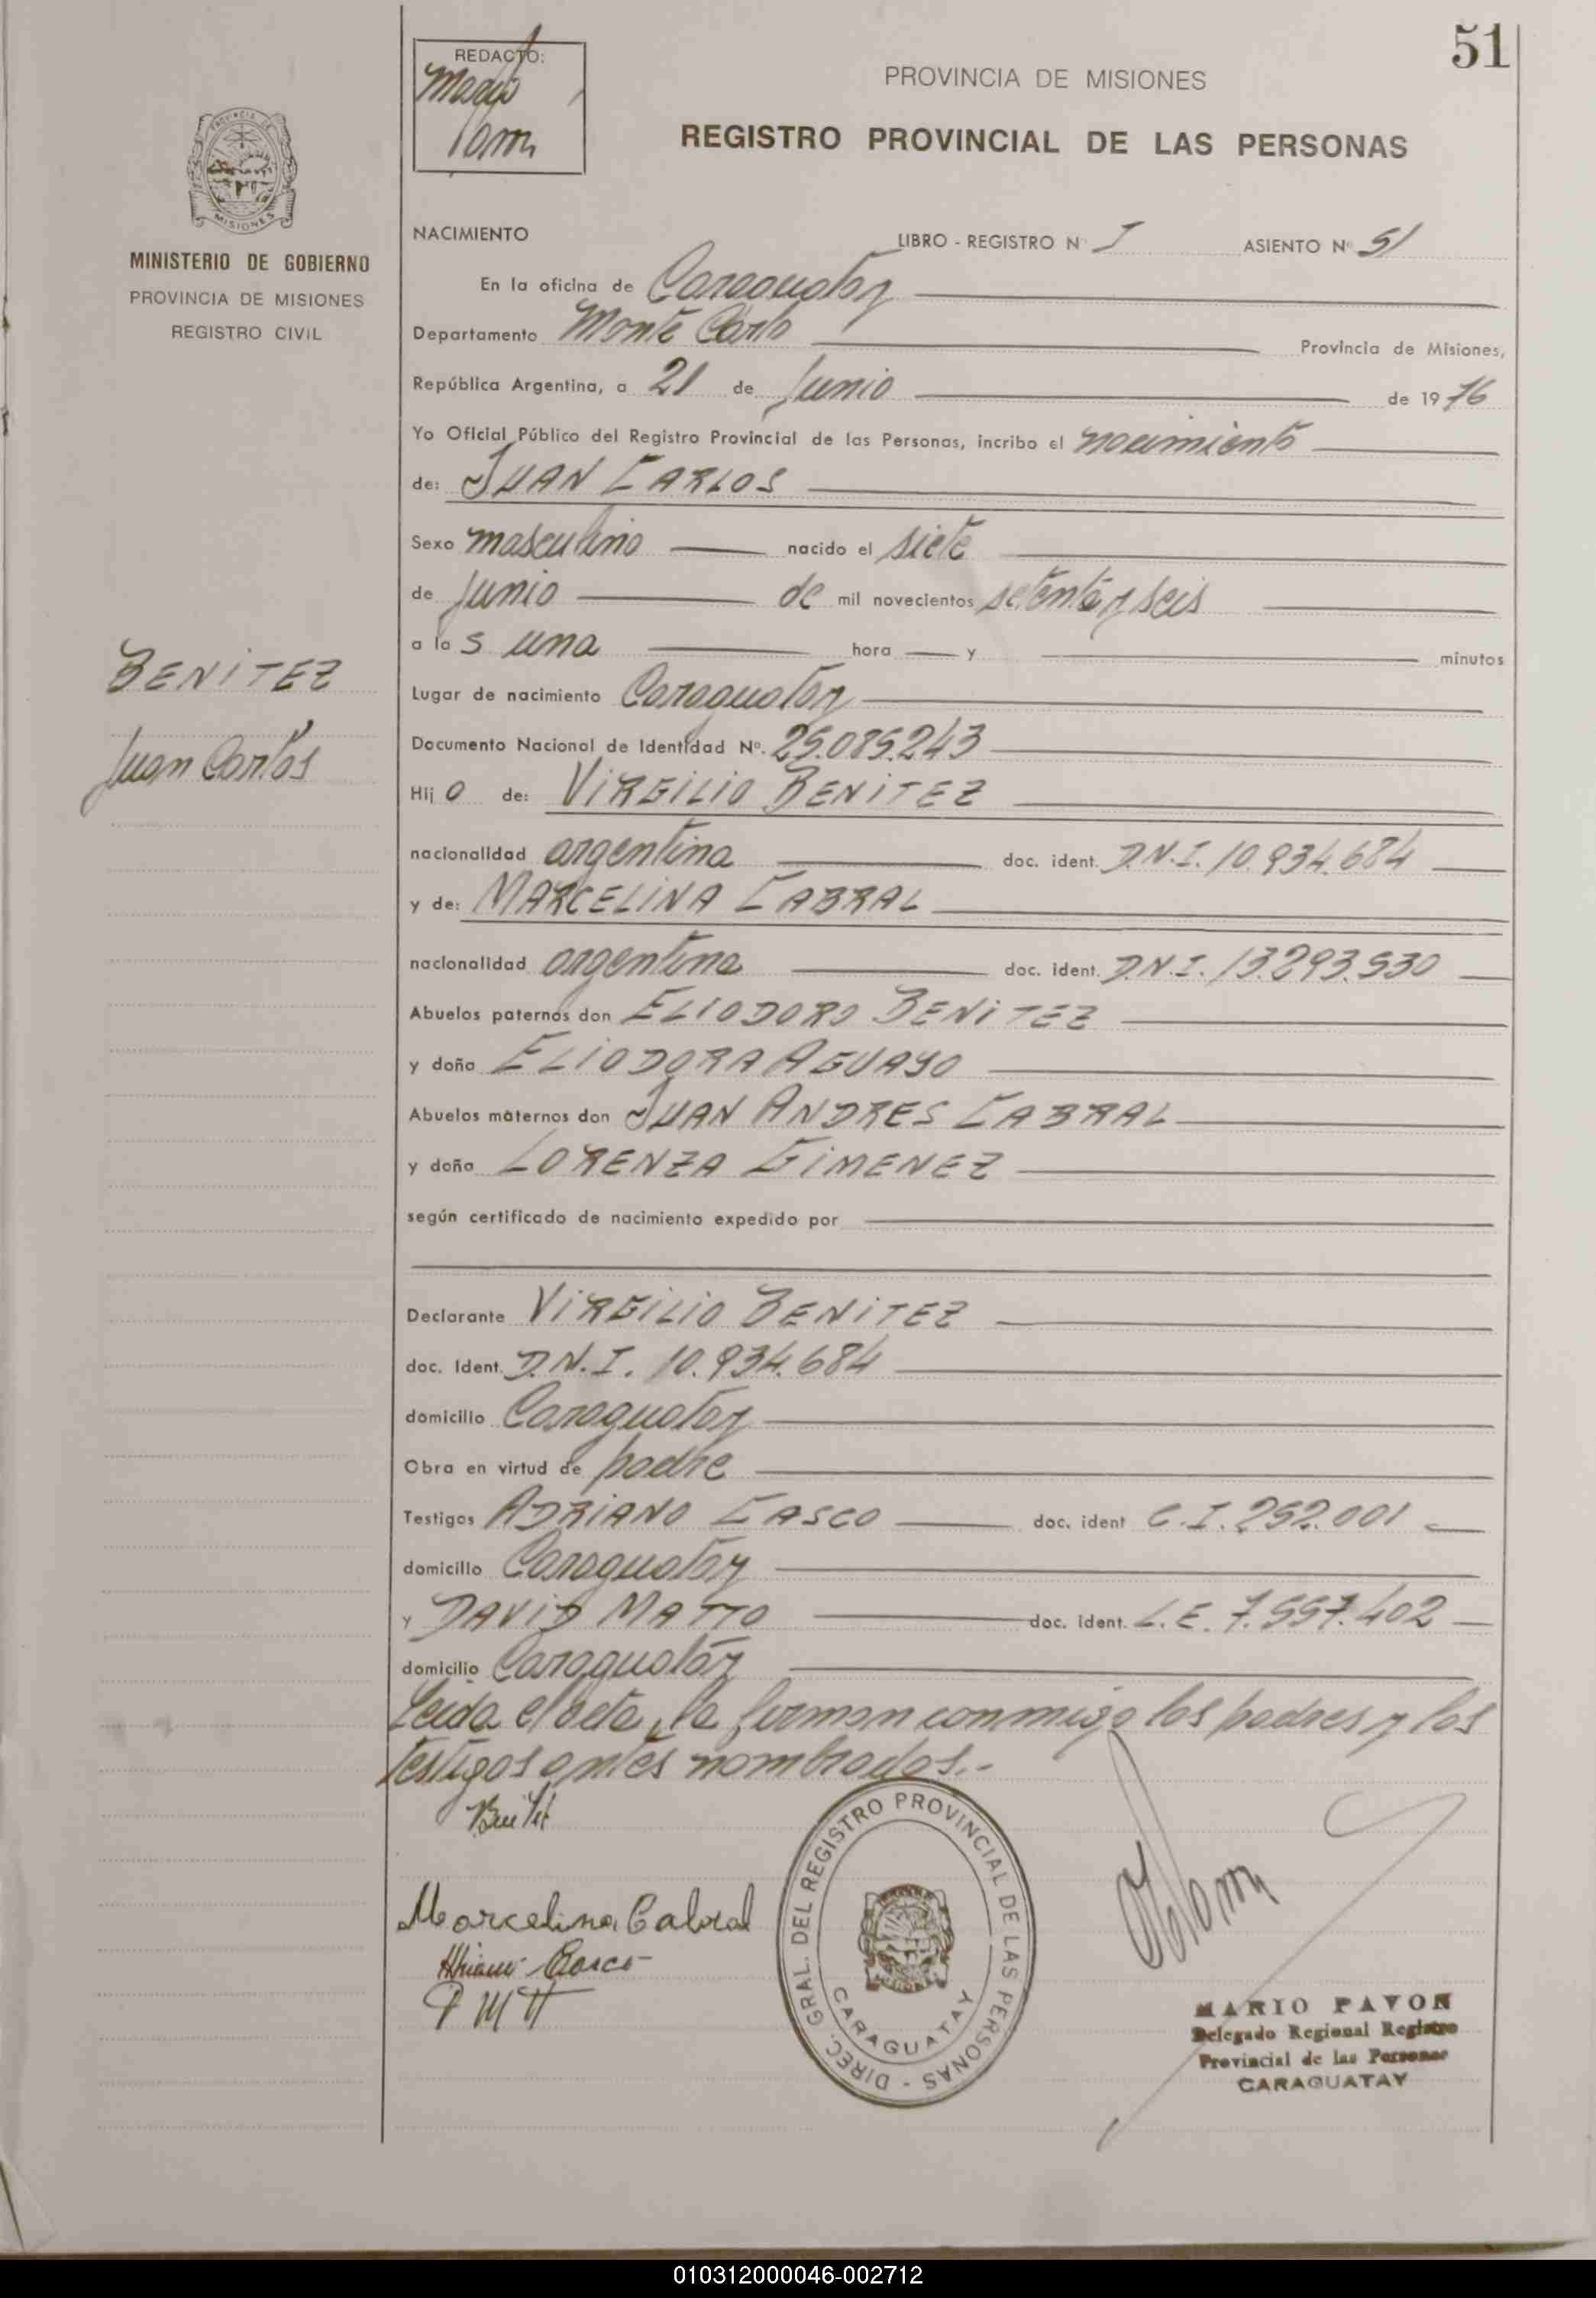 51
REDACTO:
PROVINCIA DE MISIONES
REGISTRO PROVINCIAL DE LAS PERSONAS
PROVINCIA DE
MISIONES
MINISTERIO DE GOBIERNO
PROVINCIA DE MISIONES
REGISTRO CIVIL
NACIMIENTO LIBRO - REGISTRO Nº I ASIENTO Nº 51
En la oficina de Caraguatay
Departamento Monte Carlo Provincia de Misiones,
República Argentina, a 21 de Junio de 1976
Yo Oficial Público del Registro Provincial de las Personas, incribo el nacimiento
de: JUAN CARLOS
Sexo masculino nacido el siete
de Junio de mil novecientos setenta y seis
a las una hora y minutos
BENITEZ
Juan Carlos
Lugar de nacimiento Caraguatay
Documento Nacional de Identidad Nº. 25.085.243
Hijo de: VIRGILIO BENITEZ
nacionalidad argentina doc. ident. D.N.I. 10.934.684
y de: MARCELINA CABRAL
nacionalidad argentina doc. ident. D.N.I. 13.293.530
Abuelos paternos don ELIODORO BENITEZ
y doña ELIODORA AGUAYO
Abuelos maternos don JUAN ANDRES CABRAL
y doña LORENZA GIMENEZ
según certificado de nacimiento expedido por
Declarante VIRGILIO BENITEZ
doc. Ident. D.N.I. 10.934.684
domicilio Caraguatay
Obra en virtud de padre
Testigos ADRIANO CASCO doc. ident C.I. 252.001
domicilio Caraguatay
y DAVID MATTO doc. ident. L.E. 7.557.402
domicilio Caraguatay
Leida el acta, la firman conmigo los padres y los
testigos antes nombrados.-
Marcelina Cabral
DIREC. GRAL. DEL REGISTRO PROVINCIAL DE LAS PERSONAS -
CARAGUATAY
MARIO PAVON
Delegado Regional Registro
Provincial de las Personas
CARAGUATAY
010312000046-002712